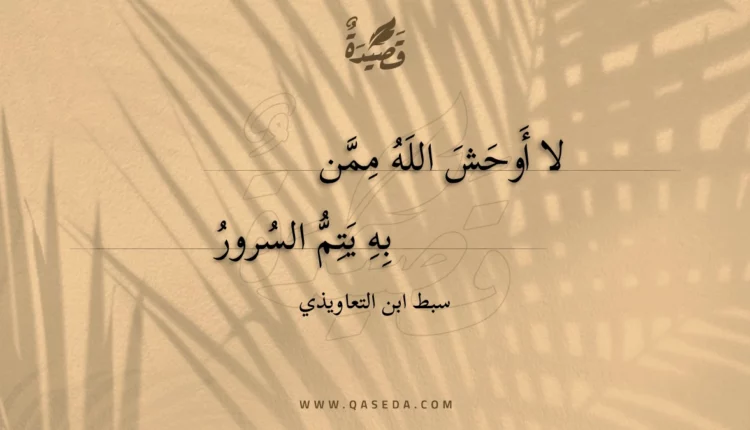 قَصِيدَةٌ
لا أَوحَشَ اللَهُ مِمَّن
بِهِ يَتِمُّ السُرورُ
سبط ابن التعاويذي
WWW.QASEDA.COM